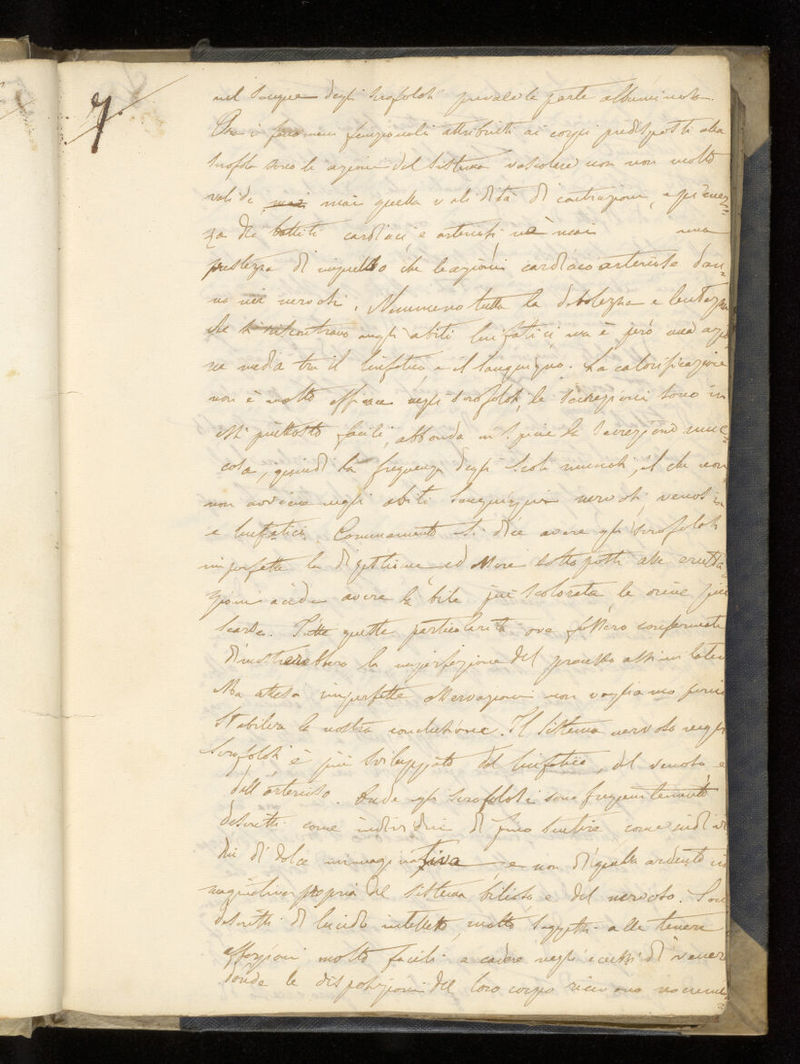 7.
nel sangue degli scrofolosi prevale la parte albuminosa.
Tra i fenomeni funzionali attribuiti ai corpi predisposti alla
scrofola sono le azioni del sistema vascolare non molto
valide, mai quella validità di contrazione, e frequen-
za di battiti cardiaci e arteriosi nè mai una
prestezza di che le azioni cardiaco arteriose dan-
no nei nervosi. Nemmeno tutta la debolezza e lentezza
che si riscontrano negli abiti linfatici ma è però una azio
ne media tra il linfatico e il sanguigno. La calorificazione
non è molto efficace negli scrofolosi, le secrezioni sono in
essi piuttosto facili, abbonda in specie la secrezione muc-
cosa, quindi la frequenza degli scoli muccosi, il che non
non avviene negli abiti sanguigni nervosi, venosi
e linfatici. Comunemente si dice avere gli scrofolosi
imperfetta la digestione ed essere sottoposti alle erutta-
zioni acide avere la bile più scolorata, le orine più
scarse. Tutte queste particolarità ove fossero confermate
dimostrerebbero la imperfezione del processo assimilativo
Ma atteso imperfette osservazioni non vogliamo
stabilire la nostra conclusione. Il sistema nervoso negli
scrofolosi è più sviluppato del linfatico, del venoso e
dell'arterioso. Onde gli scrofolosi sono frequentemente
descritti come individui di fino sentire come indivi
dui di dolce immaginativa e non di quella ardente im
maginativa propria del sistema bilioso e del nervoso. Son
descritti di lucido intelletto, molto soggetti alle tenere
affezioni molto facili a cadere negli eccessi di venere
donde le disposizioni del loro corpo ricevono nocumen